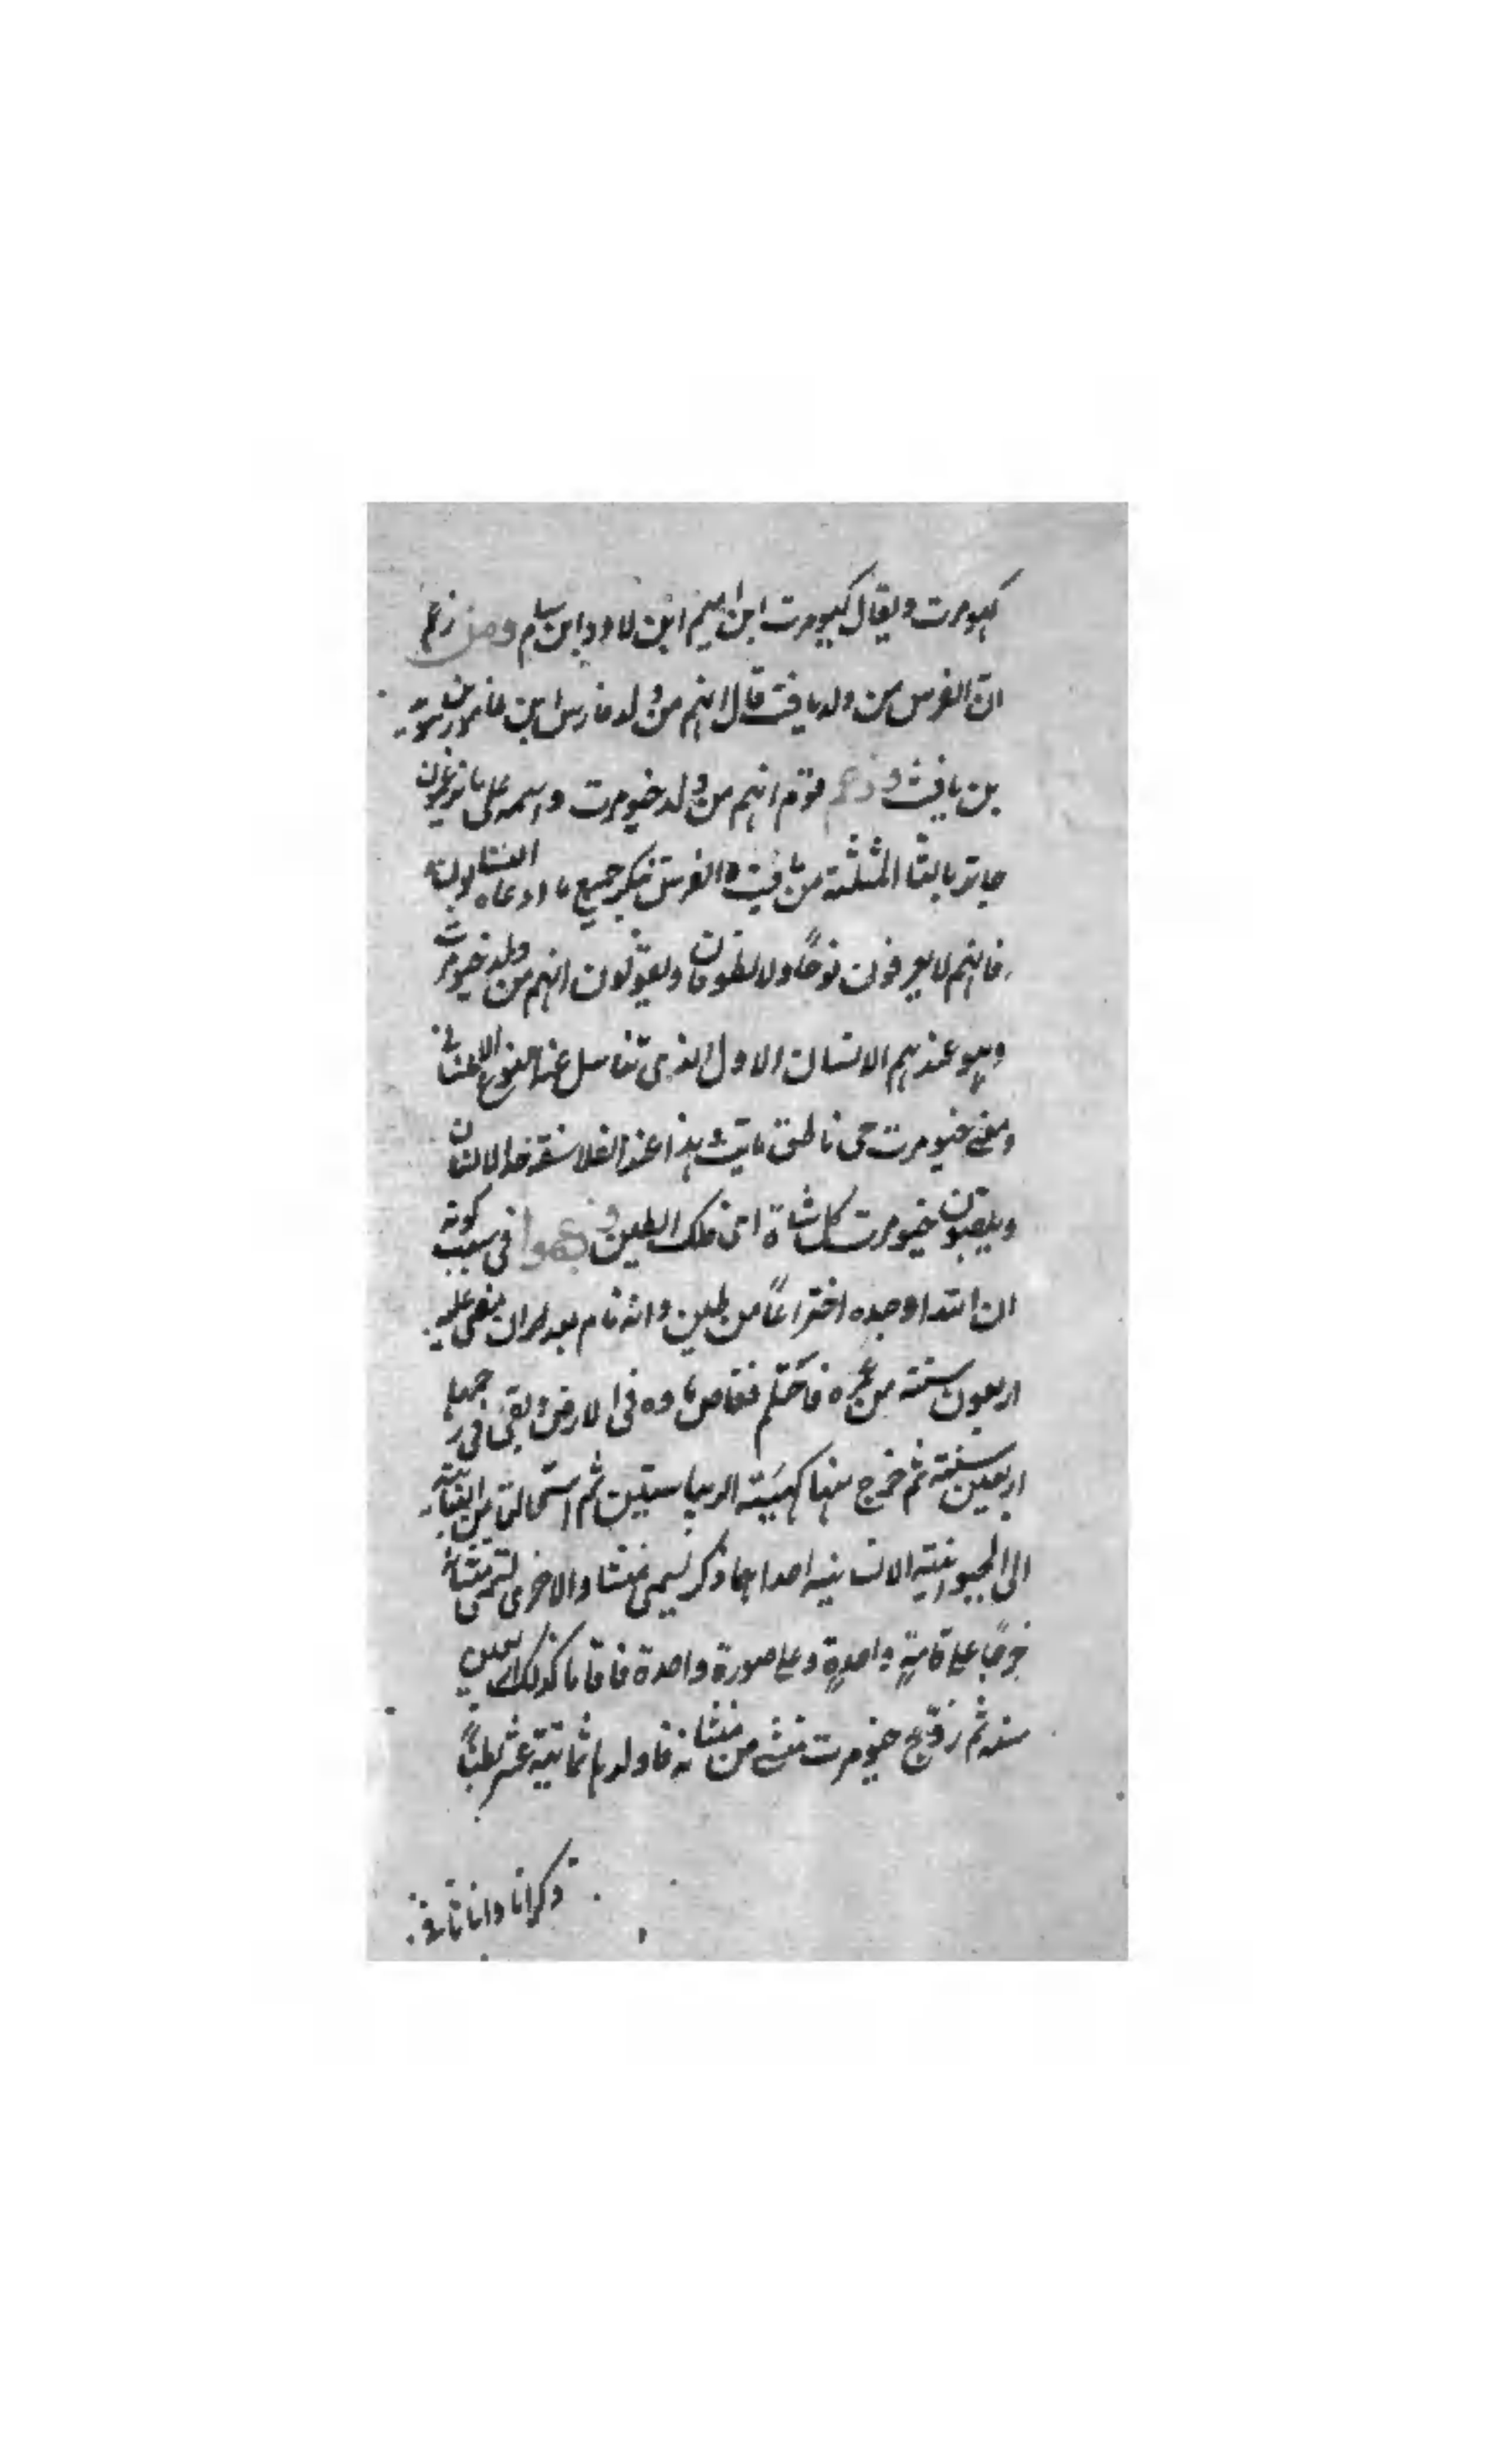 كيومرت ويقال كيومرت ابن اميم ابن لاود ابن سام ومن زعم
ان الفرس من ولد يافث قال انهم من ولد فارس ابن
بن يافث وزعم قوم انهم من ولد خيومرت واسمه على ما يزعمون
المثلثة من يافث والفرس تنكر جميع ما ادعاه النسابون
فانهم لا يعرفون نوحًا ولا لطوفان ويقولون انهم من ولد خيومرث
وهو عندهم الانسان الاول الذى تناسل عنه النوع الانسانى
ومعنى خيومرت حى ناطق مايت هذا عند الفلاسفة حد الانسان
ويلقبون خيومرت كل شاة اى ملك الطين وزعموا فى سبب كونه
ان ابتدا وجده اختراعًا من طين وانه نام بعد ان بقى عليه
اربعون سنة من عمره فاحتلم فغاص ماوه فى الارض وبقى فى رحمها
اربعين سنة ثم خرج منها كهيئة الريباستين ثم استحالتا من النباتية
الى الحيوانية الانسانية احداهما ذكر يسمى منشا والاخرى تسمى منشانه
خرجا على قامةٍ واحدةٍ وعلى صورة واحدة فاقاما كذلك
سنه ثم زوج خيومرت منشى من منشانه فاولدها ثمانية عشر بطنًا
ذكرانا واناثا فى